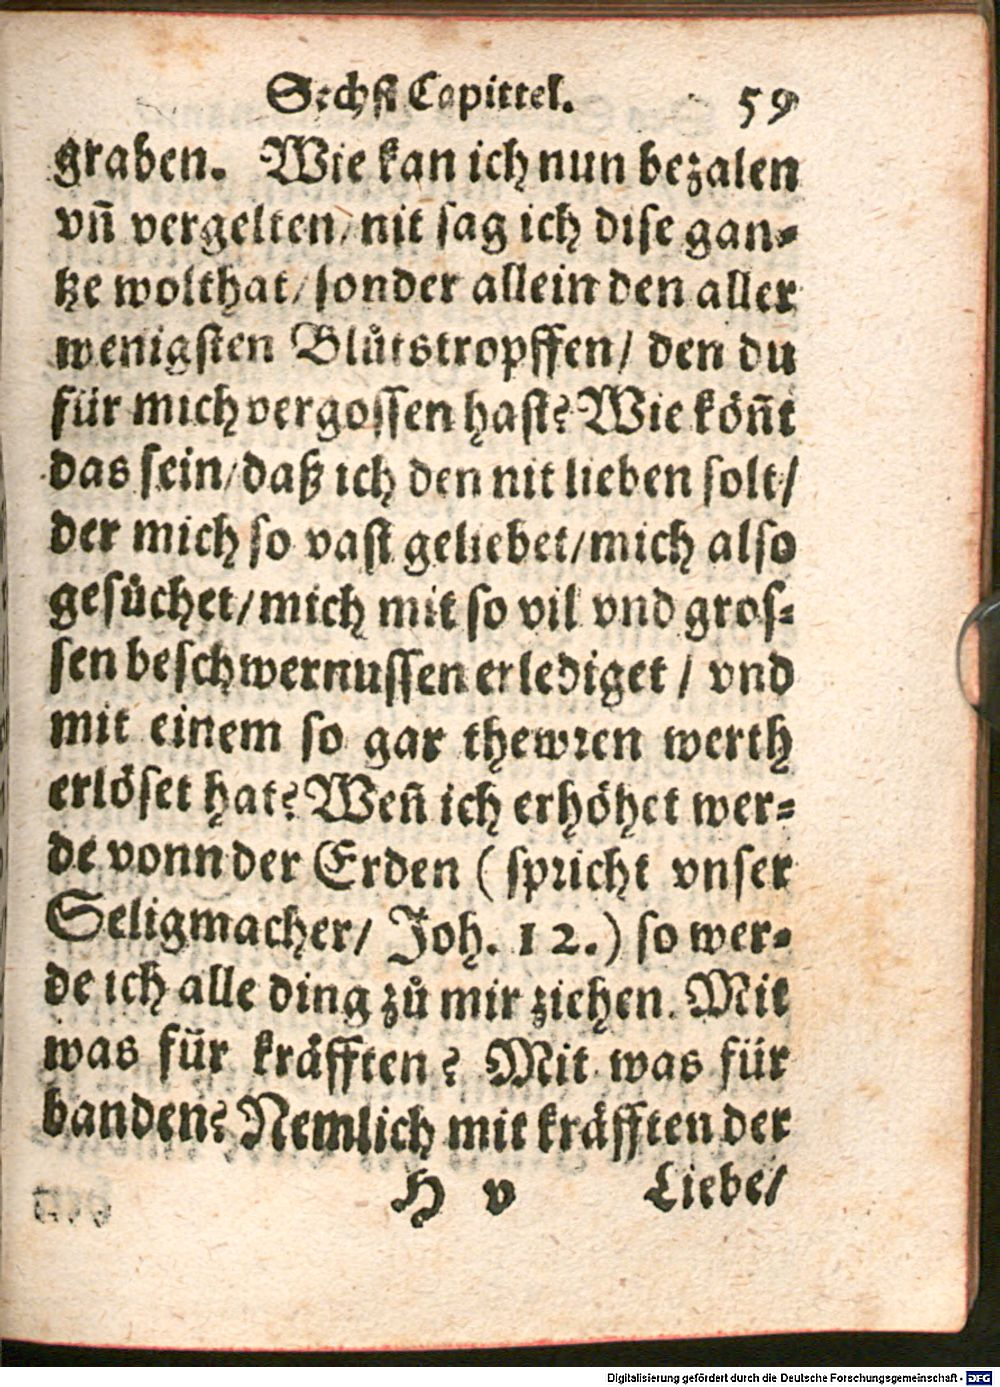 Sechst Capittel. 59
graben. Wie kan ich nun bezalen
vñ vergelten/ nit sag ich dise gan-
tze wolthat/ sonder allein den aller
wenigsten Blůtstropffen/ den du
für mich vergossen hast? Wie köñt
das sein/ daß ich den nit lieben solt/
der mich so vast geliebet/ mich also
gesůchet/ mich mit so vil vnd gros-
sen beschwernussen erlediget/ vnd
mit einem so gar thewren werth
erlöset hat? Weñ ich erhöhet wer-
de vonn der Erden (spricht vnser
Seligmacher/ Joh. 12.) so wer-
de ich alle ding zů mir ziehen. Mit
was für kräfften? Mit was für
banden? Nemlich mit kräfften der
H v Liebe/
Digitalisierung gefördert durch die Deutsche Forschungsgemeinschaft - DFG